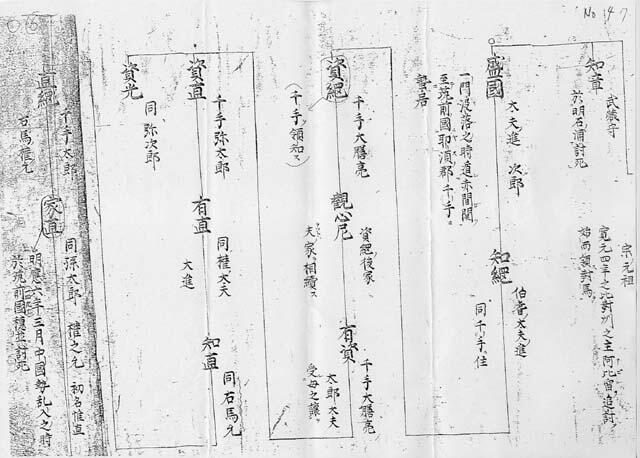 No 47
宗元祖
寛元四年之比対州之主阿比留追討
始而領対馬
知章
武蔵守
於明石浦討死
盛國
太夫進 次郎
一門没落之時遁赤間関
至筑前國
郡千手
蟄居
知綱
伯耆太夫進
同千手住
資綱
千手大膳亮
千手領知ス
観心尼
資綱後家
夫家相續ス
有資
千手大膳亮
太郎太夫
受母之譲
資直
千手弥太郎
有直
同権太夫
大進
知直
同右馬允
資光
同弥次郎
直綱
千手太郎
右馬権允
家直
同孫太郎 権之允 初名惟直
六年三月中國勢乱入之時
於筑前國
討死